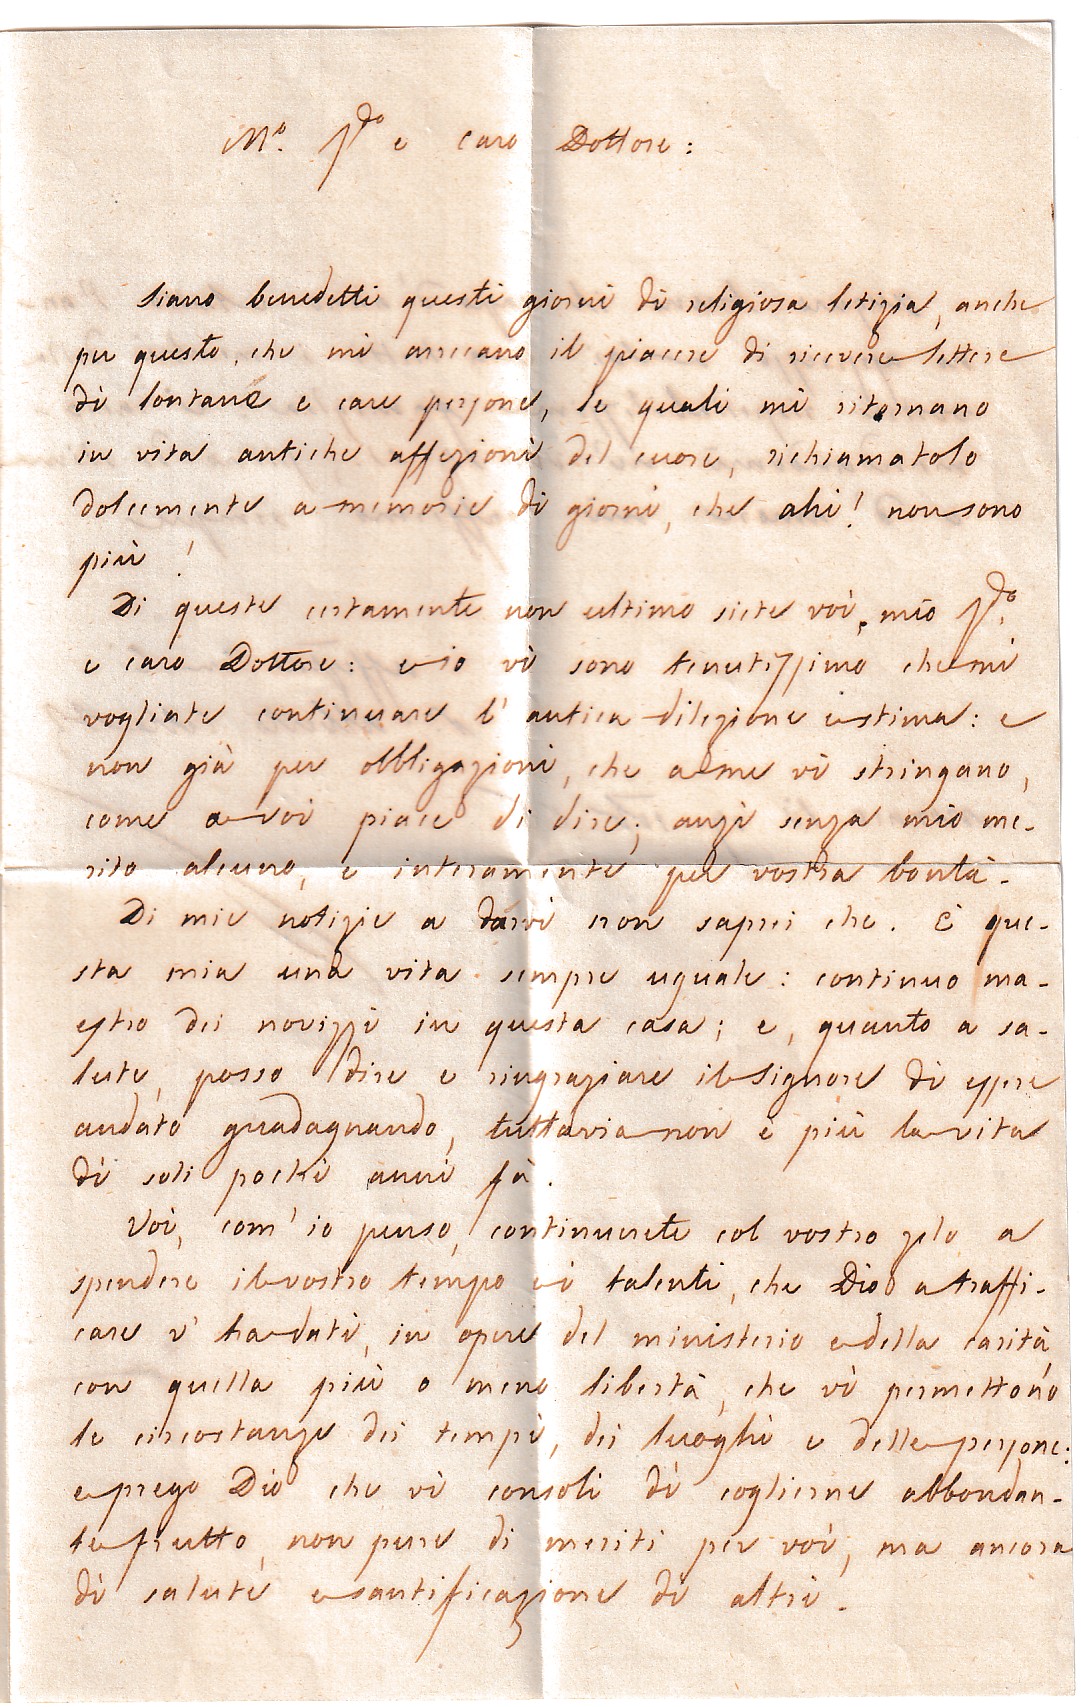 M.º Rdo e caro Dottore:
Siano benedetti questi giorni di religiosa letizia, anche
per questo, che mi arrecano il piacere di ricevere lettere
di lontane e care persone, le quali mi ritornano
in vita antiche affezioni del cuore, richiamatolo
dolcemente a memorie di giorni, che ahi! non sono
più!
Di queste certamente non ultimo siete voi, mio Rdo
e caro Dottore: e io vi sono tenutissimo che mi
vogliate continuare l'antica dilezione e stima: e
non già per obbligazioni, che a me vi stringano,
come a voi piace di dire; anzi senza mio me-
rito alcuno, e interamente per vostra bontà.
Di mie notizie a darvi non saprei che. È que-
sta mia una vita sempre uguale: continuo ma-
estro dei novizzi in questa casa; e, quanto a sa-
lute, posso dire e ringraziare il Signore di essere
andato guadagnando, tuttavia non è più la vita
di soli pochi anni fà.
Voi, com'io penso, continuerete col vostro zelo a
spendere il vostro tempo e i talenti, che Dio a traffi-
care v'ha dati, in opere del ministerio e della carità,
con quella più o meno libertà, che vi permettono
le circostanze dei tempi, dei luoghi e delle persone:
e prego Dio che vi consoli di coglierne abbondan-
te frutto, non pure di meriti per voi, ma ancora
di salute e santificazione di altri.